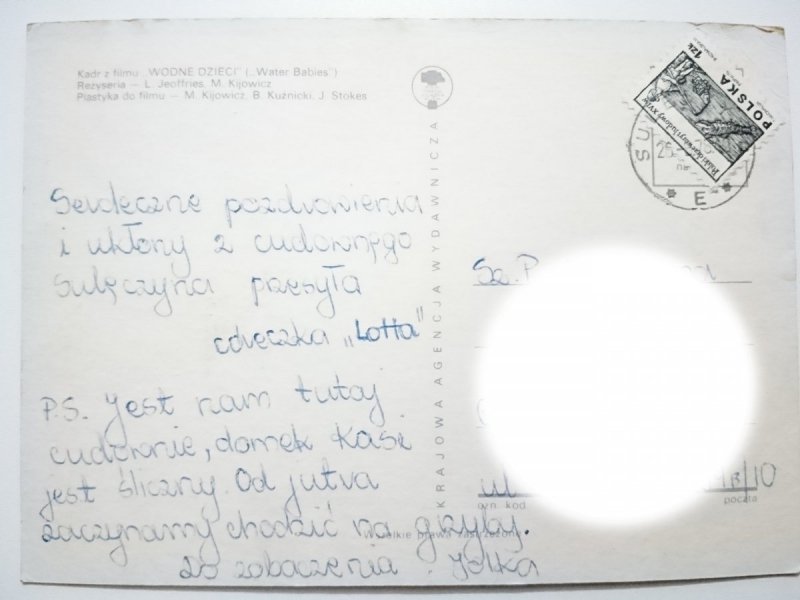 Kadr z filmu „WODNE DZIECI" („Water Babies")
Reżyseria — L. Jeoffries, M. Kijowicz
Plastyka do filmu — M. Kijowicz, B. Kuźnicki, J. Stokes
KRAJOWA AGENCJA WYDAWNICZA
POLSKA
1 ZŁ
Polski drzeworyt ludowy XVI w.
SU
25
E
Serdeczne pozdrowienia
i ukłony z cudownego
Sulęczyna przesyła
córeczka „Lotta"
P.S. Jest nam tutaj
cudownie, domek Kasi
jest śliczny. Od jutra
zaczynamy chodzić na grzyby.
Do zobaczenia. Jolka
Sz. P.
ul
/10
poczta
kod
prawa zastrzeżone